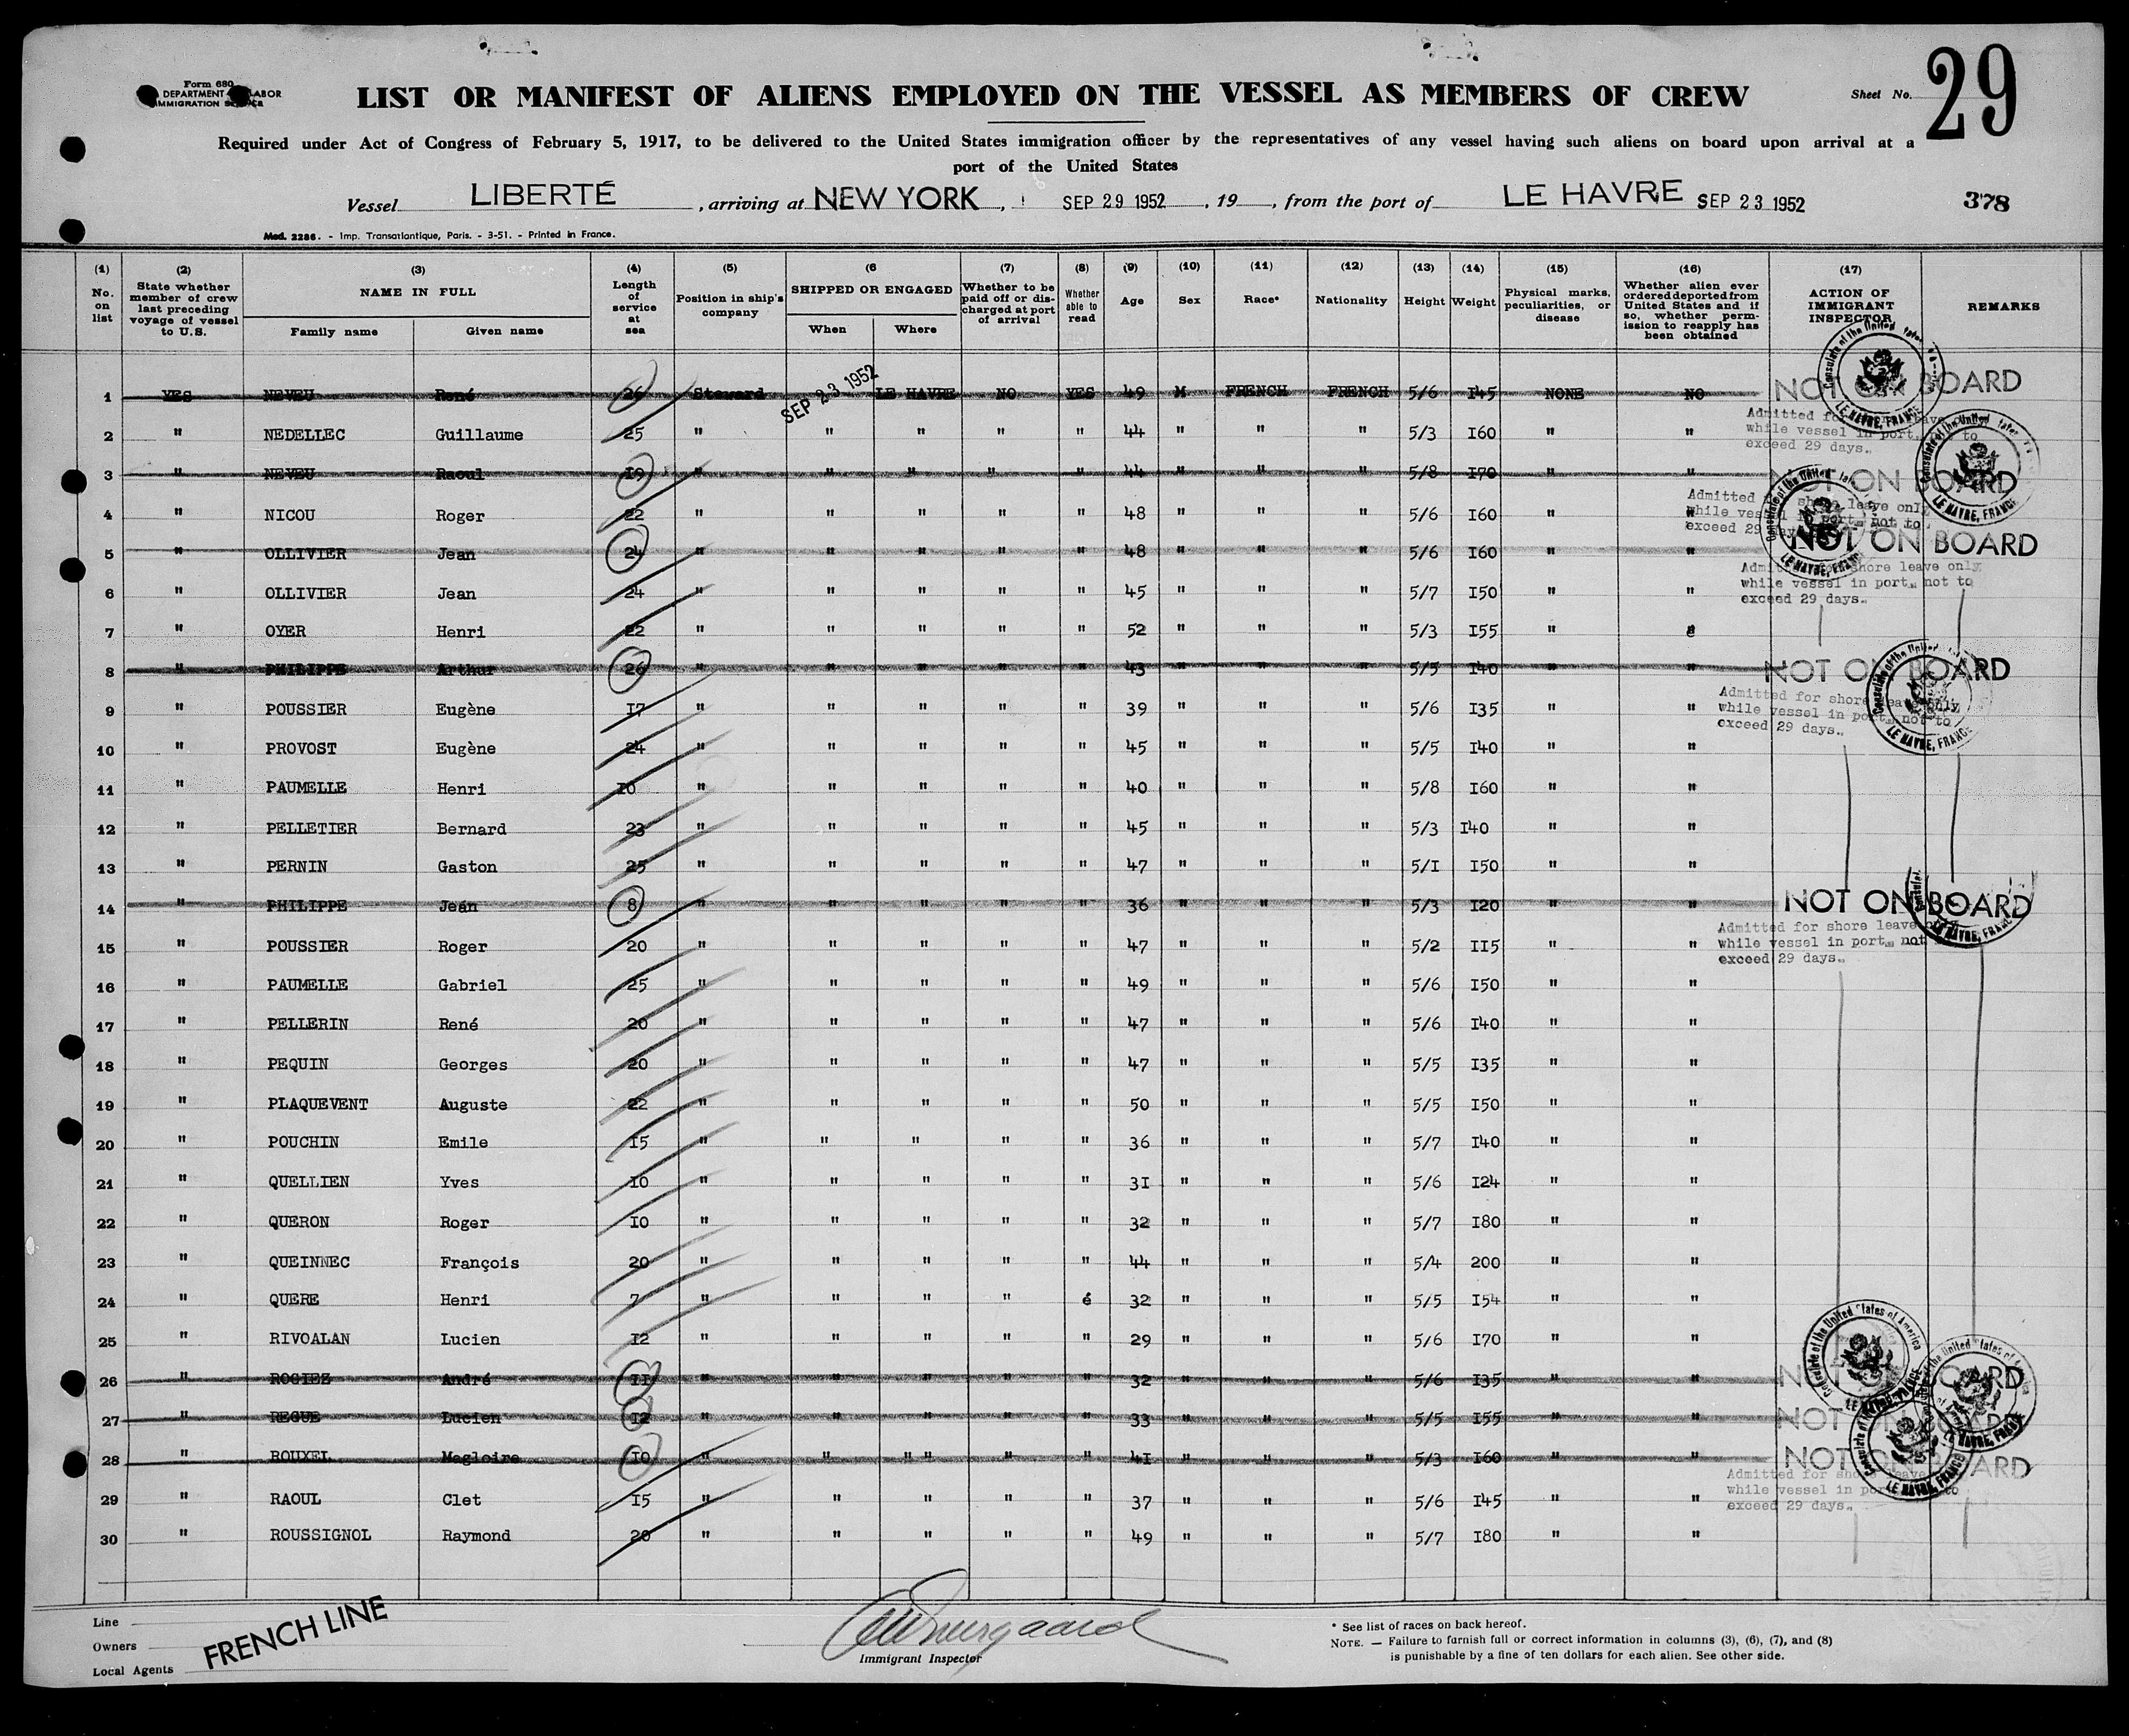 Form 680
DEPARTMENT LABOR
IMMIGRATION
LIST OR MANIFEST OF ALIENS EMPLOYED ON THE VESSEL AS MEMBERS OF CREW
Sheet No. 29
Required under Act of Congress of February 5, 1917, to be delivered to the United States immigration officer by the representatives of any vessel having such aliens on board upon arrival at a
port of the United States
Vessel LIBERTÉ, arriving at NEW YORK, SEP 29 1952, 19, from the port of LE HAVRE SEP 23 1952 378
Mod. 2286. - Imp. Transatlantique, Paris. - 3-51. - Printed in France.
(1) No. on list (2) State whether member of crew last preceding voyage of vessel to U.S. (3) NAME IN FULL Family name Given name (4) Length of service at sea (5) Position in ship's company (6 SHIPPED OR ENGAGED When Where (7) Whether to be paid off or discharged at port of arrival (8) Whether able to read (9) Age (10) Sex (11) Race* (12) Nationality (13) Height (14) Weight (15) Physical marks, peculiarities, or disease (16) Whether alien ever ordered deported from United States and if so, whether permission to reapply has been obtained (17) ACTION OF IMMIGRANT INSPECTOR REMARKS
1 YES NEVEU René 26 Steward SEP 23 1952 LE HAVRE NO YES 49 M FRENCH FRENCH 5/6 I45 NONE NO NOT ON BOARD
Admitted for shore leave
while vessel in port, not to
exceed 29 days.
2 " NEDELLEC Guillaume 25 " " " " " 44 " " " 5/3 I60 " "
3 " NEVEU Raoul I9 " " " " " 44 " " " 5/8 I70 " " NOT ON BOARD
Admitted for shore leave only
while vessel in port, not to
exceed 29 days
4 " NICOU Roger 22 " " " " " 48 " " " 5/6 I60 " "
5 " OLLIVIER Jean 24 " " " " " 48 " " " 5/6 I60 " " NOT ON BOARD
Admitted for shore leave only
while vessel in port, not to
exceed 29 days.
6 " OLLIVIER Jean 24 " " " " " 45 " " " 5/7 I50 " "
7 " OYER Henri 22 " " " " " 52 " " " 5/3 I55 " é
8 " PHILIPPE Arthur 26 " " " " " 43 " " " 5/5 I40 " " NOT ON BOARD
Admitted for shore leave only
while vessel in port, not to
exceed 29 days.
9 " POUSSIER Eugène I7 " " " " " 39 " " " 5/6 I35 " "
10 " PROVOST Eugène 24 " " " " " 45 " " " 5/5 I40 " "
11 " PAUMELLE Henri I0 " " " " " 40 " " " 5/8 I60 " "
12 " PELLETIER Bernard 23 " " " " " 45 " " " 5/3 I40 " "
13 " PERNIN Gaston 25 " " " " " 47 " " " 5/I I50 " "
14 " PHILIPPE Jean 8 " " " " " 36 " " " 5/3 I20 " " NOT ON BOARD
Admitted for shore leave
while vessel in port, not
exceed 29 days.
15 " POUSSIER Roger 20 " " " " " 47 " " " 5/2 II5 " "
16 " PAUMELLE Gabriel 25 " " " " " 49 " " " 5/6 I50 " "
17 " PELLERIN René 20 " " " " " 47 " " " 5/6 I40 " "
18 " PEQUIN Georges 20 " " " " " 47 " " " 5/5 I35 " "
19 " PLAQUEVENT Auguste 22 " " " " " 50 " " " 5/5 I50 " "
20 " POUCHIN Emile I5 " " " " " 36 " " " 5/7 I40 " "
21 " QUELLIEN Yves I0 " " " " " 3I " " " 5/6 I24 " "
22 " QUERON Roger I0 " " " " " 32 " " " 5/7 I80 " "
23 " QUEINNEC François 20 " " " " " 44 " " " 5/4 200 " "
24 " QUERE Henri 7 " " " " é 32 " " " 5/5 I54 " "
25 " RIVOALAN Lucien I2 " " " " " 29 " " " 5/6 I70 " "
26 " ROGIEZ André II " " " " " 32 " " " 5/6 I35 " " NOT ON BOARD
27 " REGUE Lucien I2 " " " " " 33 " " " 5/5 I55 " " NOT ON BOARD
28 " ROUXEL Magloire I0 " " " " " " 4I " " " 5/3 I60 " " NOT ON BOARD
Admitted for shore leave
while vessel in port to
exceed 29 days.
29 " RAOUL Clet I5 " " " " " 37 " " " 5/6 I45 " "
30 " ROUSSIGNOL Raymond 20 " " " " " 49 " " " 5/7 I80 " "
Consulate of the United States of America
LE HAVRE, FRANCE
Line
Owners
Local Agents
FRENCH LINE
Immigrant Inspector
* See list of races on back hereof.
NOTE. — Failure to furnish full or correct information in columns (3), (6), (7), and (8)
is punishable by a fine of ten dollars for each alien. See other side.